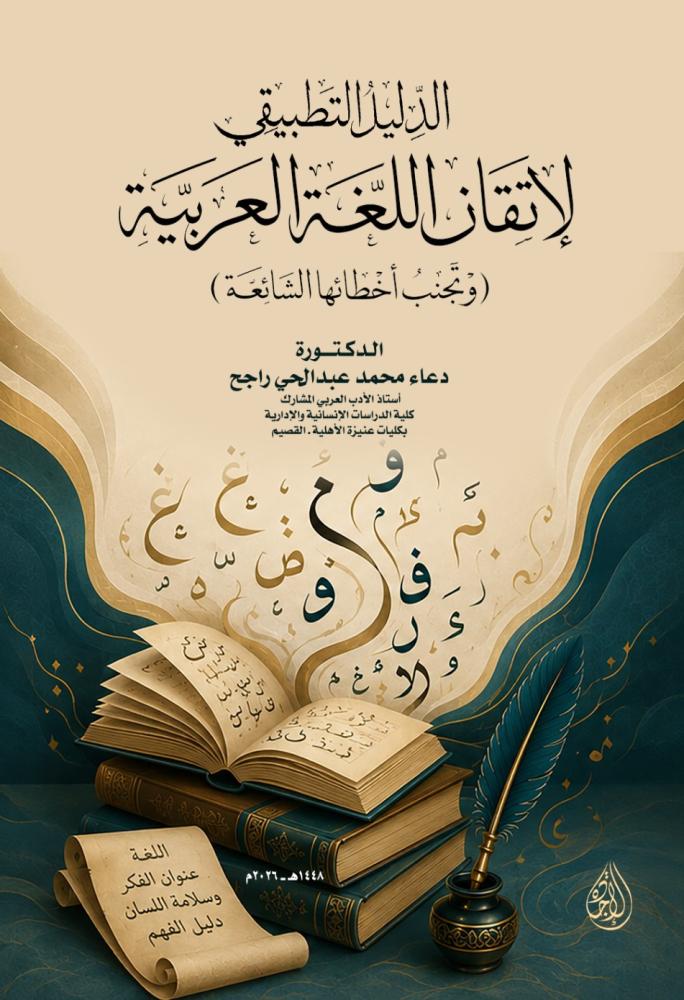 الدِّليلُ التَطبيقِي
لإتِقَان اللغَة العَرَبيَّة
(وتَجنبُ أخطائها الشائِعَة)
الدكتــورة
دعاء محمد عبدالحي راجح
أستاذ الأدب العربي المشارك
كلية الدراسات الإنسانية والإدارية
بكليات عنيزة الأهلية . القصيم
١٤٤٨هـ ـ ٢٠٢٦م
اللغة
عنوان الفكر
وسلامة اللسان
دليل الفهم